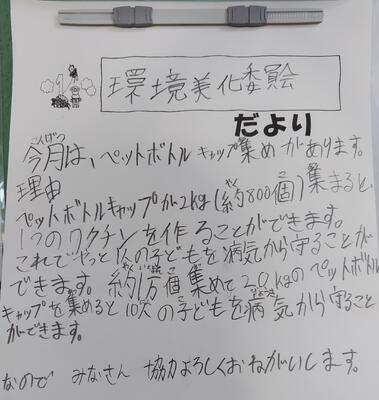 環境美化委員会
だより
こんげつ
今月は、ペットボトルキャップ集めがあります。
理由
ペットボトルキャップが2kg(約800個)集まると、
1つのワクチンを作ることができます。
これでやっと1人の子どもを病気から守ることが
できます。約1万個集めて20kgのペットボトル
キャップを集めると10人の子どもを病気から守ること
ができます。
なので みなさん 協力よろしくおねがいします。